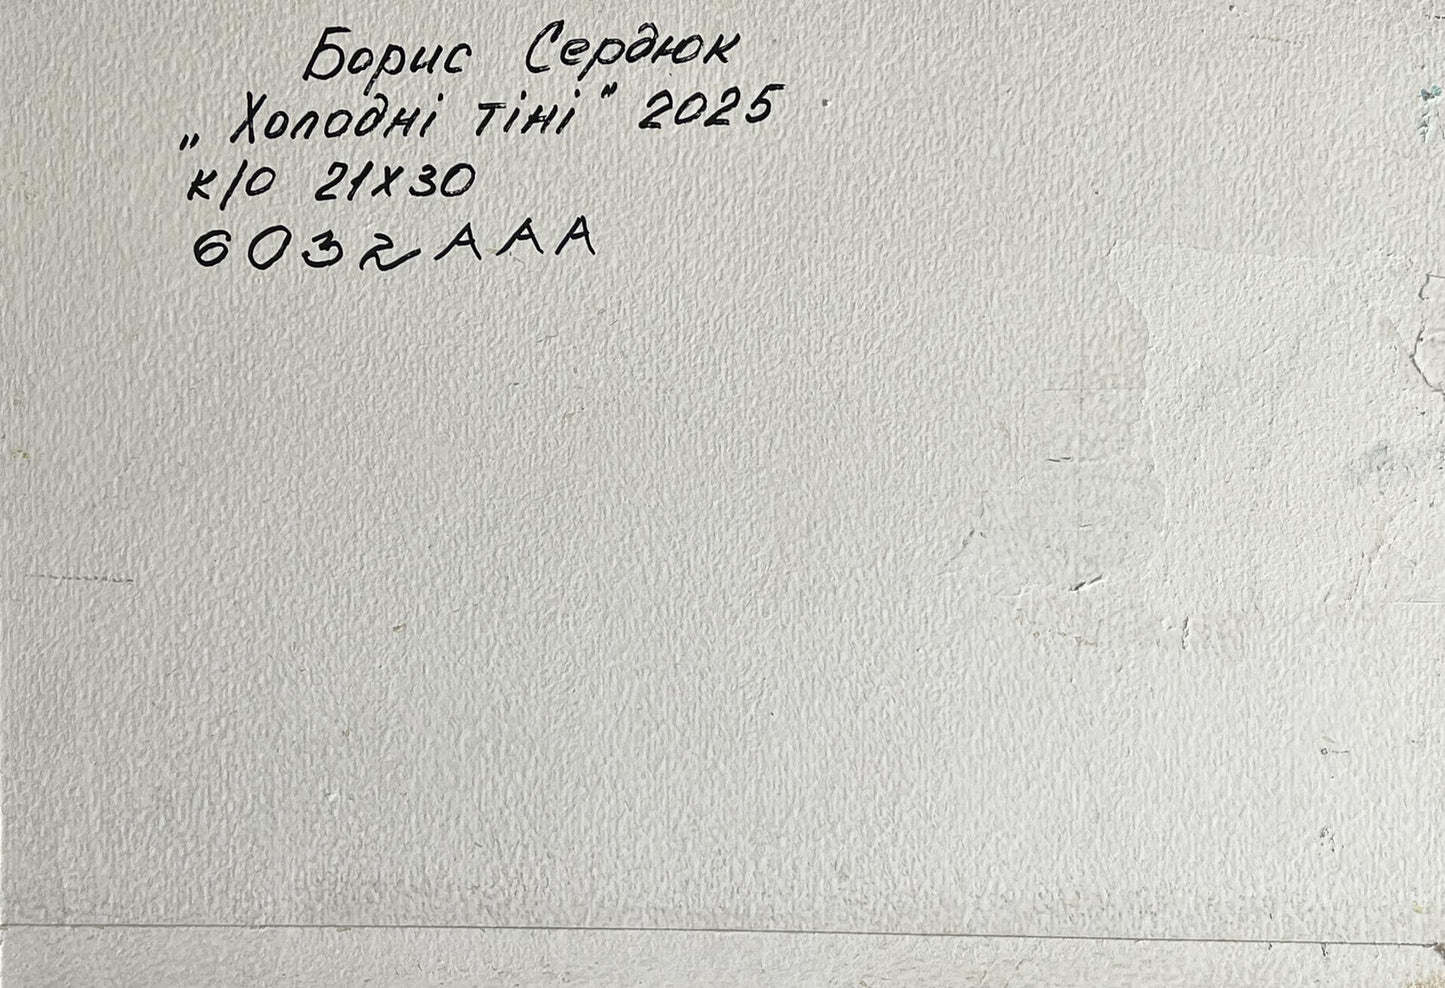 Борис Сердюк
„Холодні тіні" 2025
к/о 21х30
6032ААА